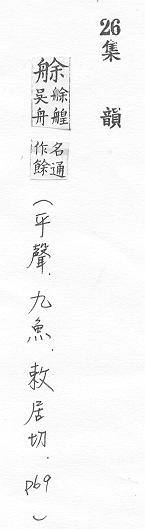 26
集韻
艅
艅艎
吳舟
名通
作餘
(平聲．九魚．敕居切．p69)